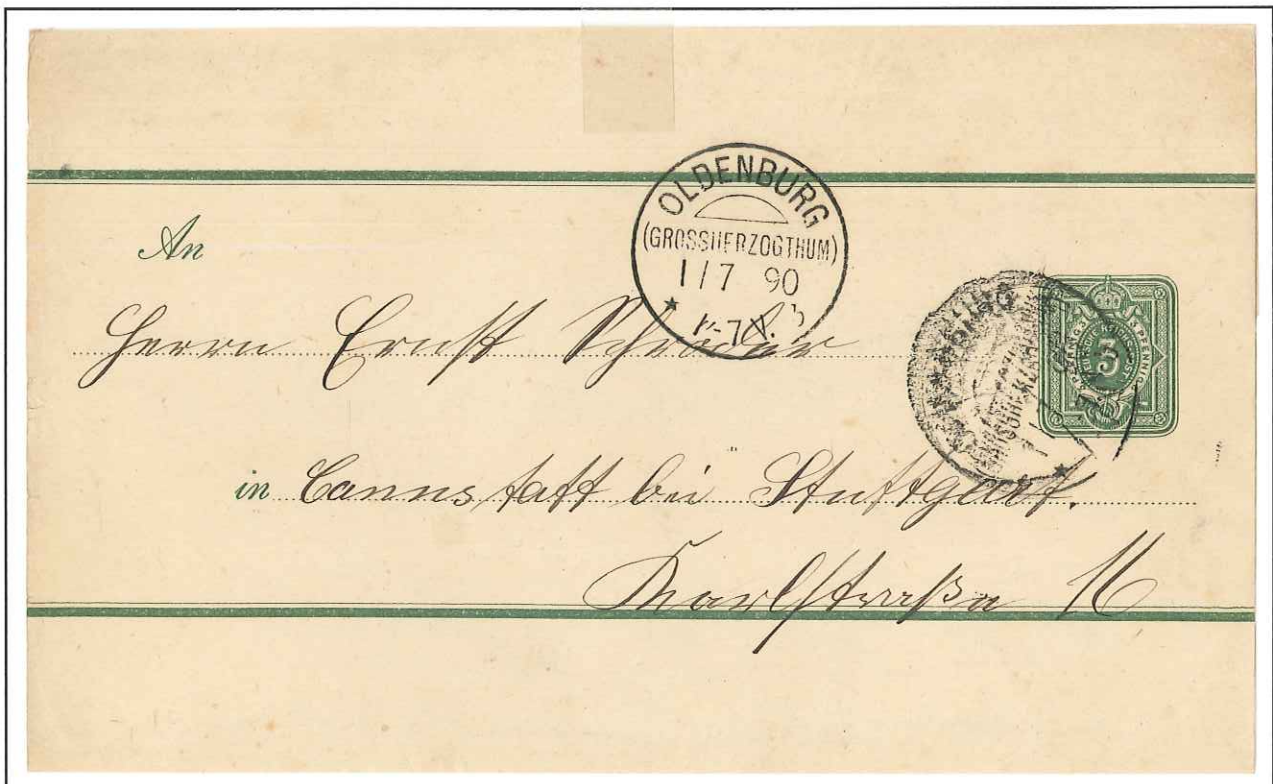 OLDENBURG
(GROSSHERZOGTHUM)
1/7 90
An
Herrn Ernst Schröder
in Cannstatt bei Stuttgart.
Karlstraße
3